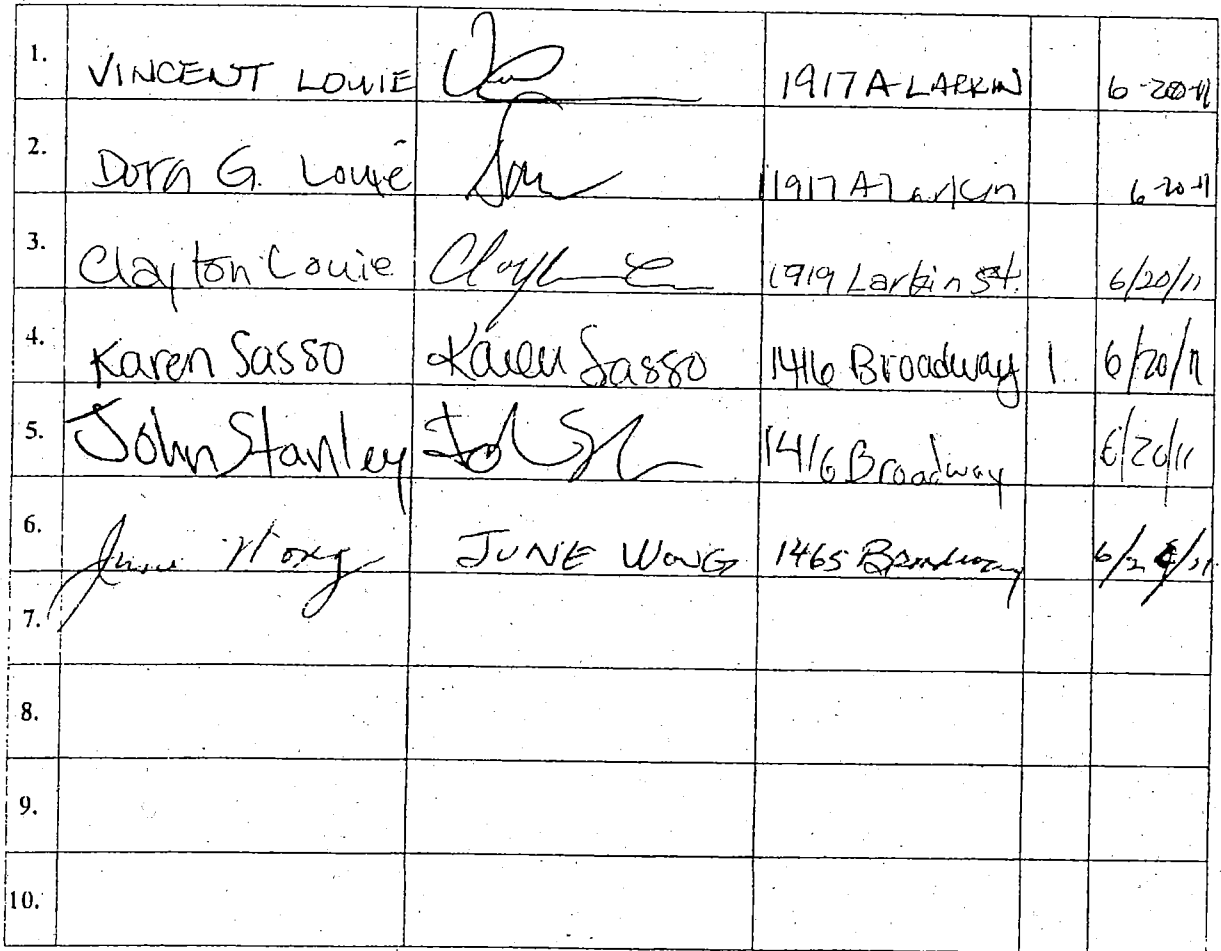 1. VINCENT LOUIE 1917 A LARKIN 6-20-11
2. Dora G. Louie 1917 A Larkin 6-20-11
3. Clayton Louie 1919 Larkin St. 6/20/11
4. Karen Sasso Karen Sasso 1416 Broadway 1 6/20/11
5. John Stanley 1416 Broadway 6/20/11
6. June Wong JUNE WONG 1465 Broadway
7.
8.
9.
10.